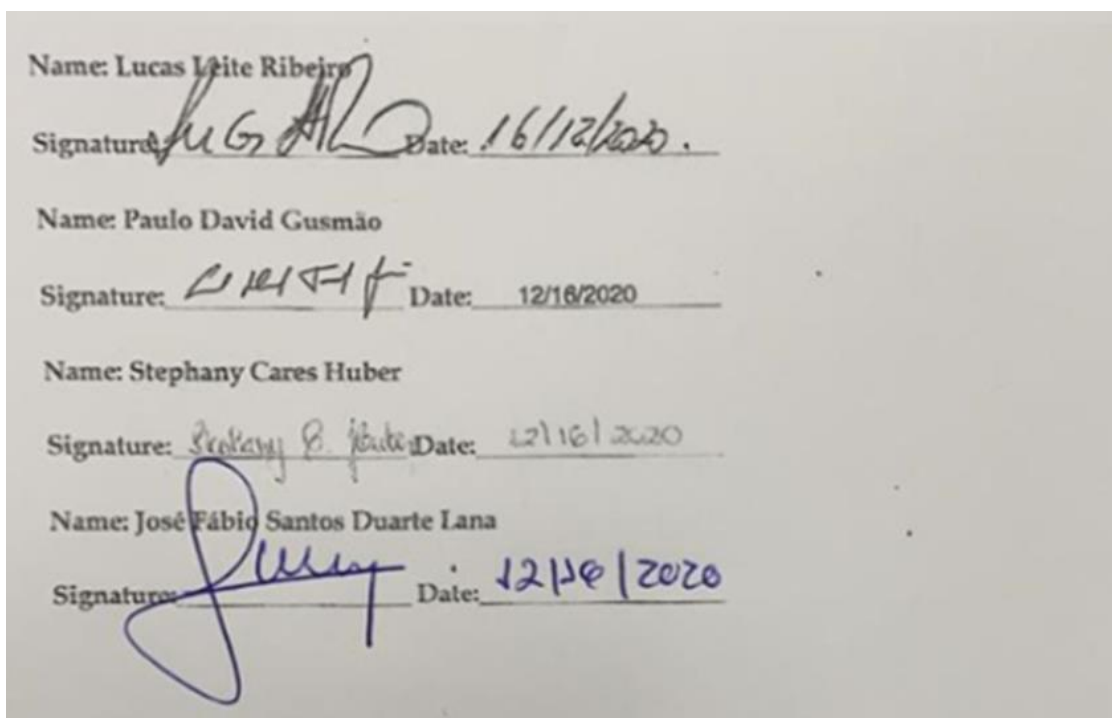 Name: Lucas Leite Ribeiro
Signature: Date: 16/12/2020.
Name: Paulo David Gusmão
Signature: Date: 12/16/2020
Name: Stephany Cares Huber
Signature: Stephany C. Huber Date: 12/16/2020
Name: José Fábio Santos Duarte Lana
Signature: Date: 12/16/2020